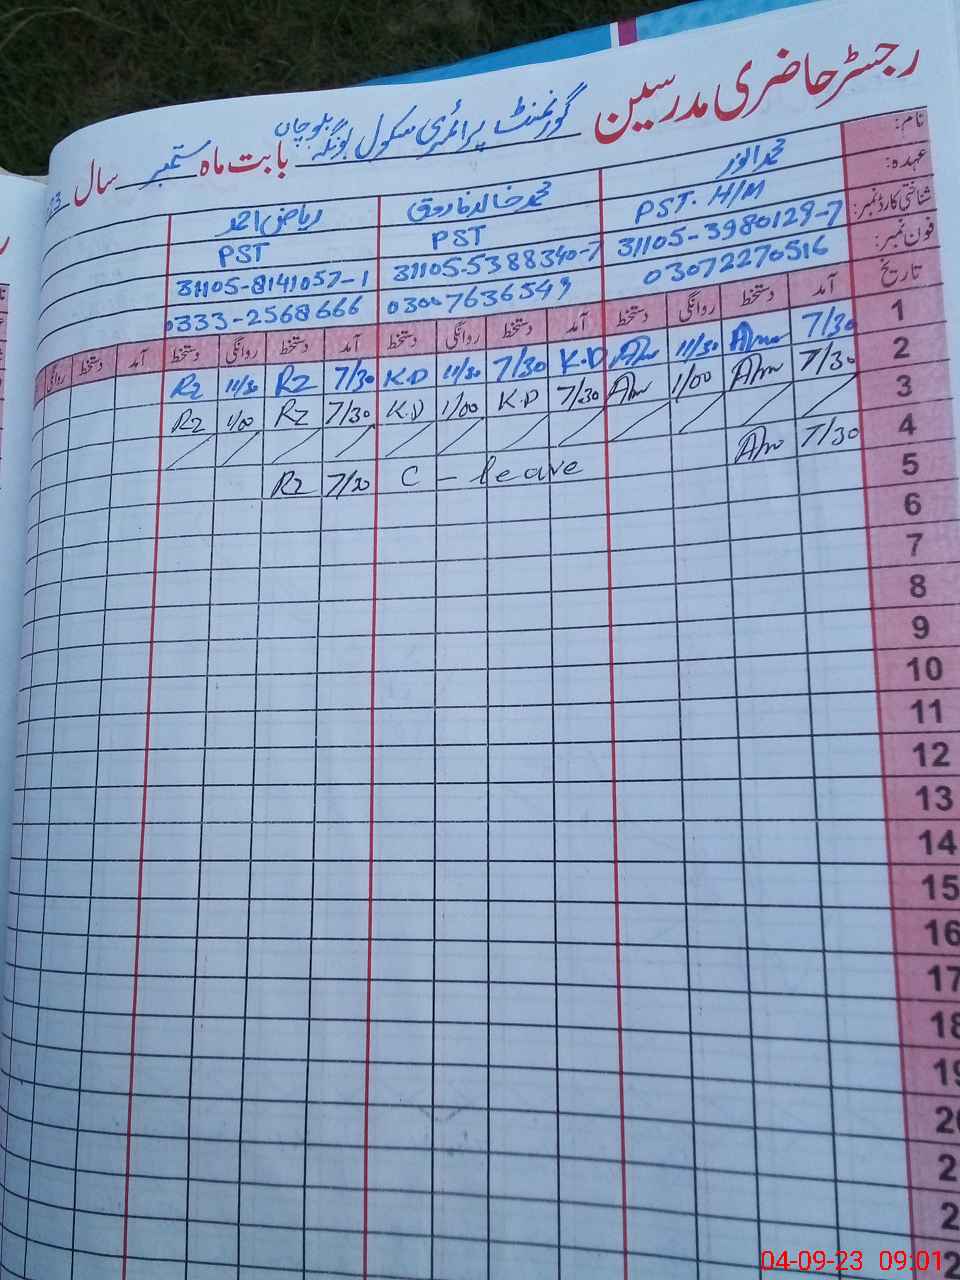 رجسٹر حاضری مدرسین گورنمنٹ پرائمری سکول بونگہ بلوچاں بابت ماہ ستمبر سال 23
نام: محمد انور محمد خالد فاروق ریاض احمد
عہدہ: PST. H/M PST PST
شناختی کارڈ نمبر: 31105-3980129-7 31105-5388340-7 31105-8141057-1
فون نمبر: 03072270516 03007636549 0333-2568666
تاریخ آمد دستخط روانگی دستخط آمد دستخط روانگی دستخط آمد دستخط روانگی دستخط آمد دستخط روانگی
1 7/30 Am 11/30 Am K.D 7/30 11/30 K.D 7/30 RZ 11/30 RZ
2 7/30 Am 1/00 Am 7/30 K.D 1/00 K.D 7/30 RZ 1/00 RZ
3 / / / / / / / / / / / /
4 7/30 Am C - leave 7/30 RZ
5
6
7
8
9
10
11
12
13
14
15
16
17
18
19
20
2
2
04-09-23 09:01